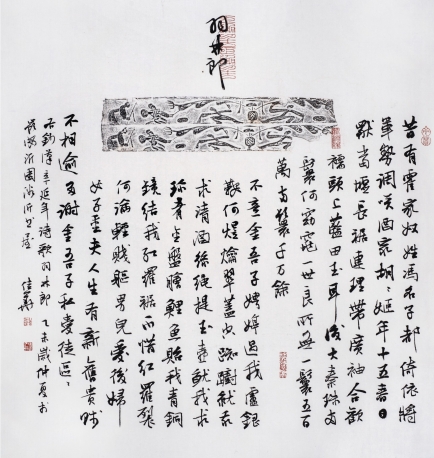 羽林郎
昔有霍家奴姓馮名子都倚依將
軍勢調咲酒家胡〻姬年十五春日
獨當壚長裾連理帶廣袖合歡
襦頭上藍田玉耳後大秦珠兩
鬟何窈窕一世良所無一鬟五百
萬兩鬟千万餘
不意金吾子娉婷過我廬銀
鞍何煜爚翠蓋空踟躕就我
求清酒絲繩提玉壺就我求
珍肴金盤膾鯉魚貽我青銅
鏡結我紅羅裾不惜紅羅裂
何論輕賤軀男兒愛後婦
女子重夫人生有新舊貴賤
不相逾多謝金吾子私愛徒區〻
右錄漢辛延年詩歌羽林郎乙未歲仲夏書
佳華